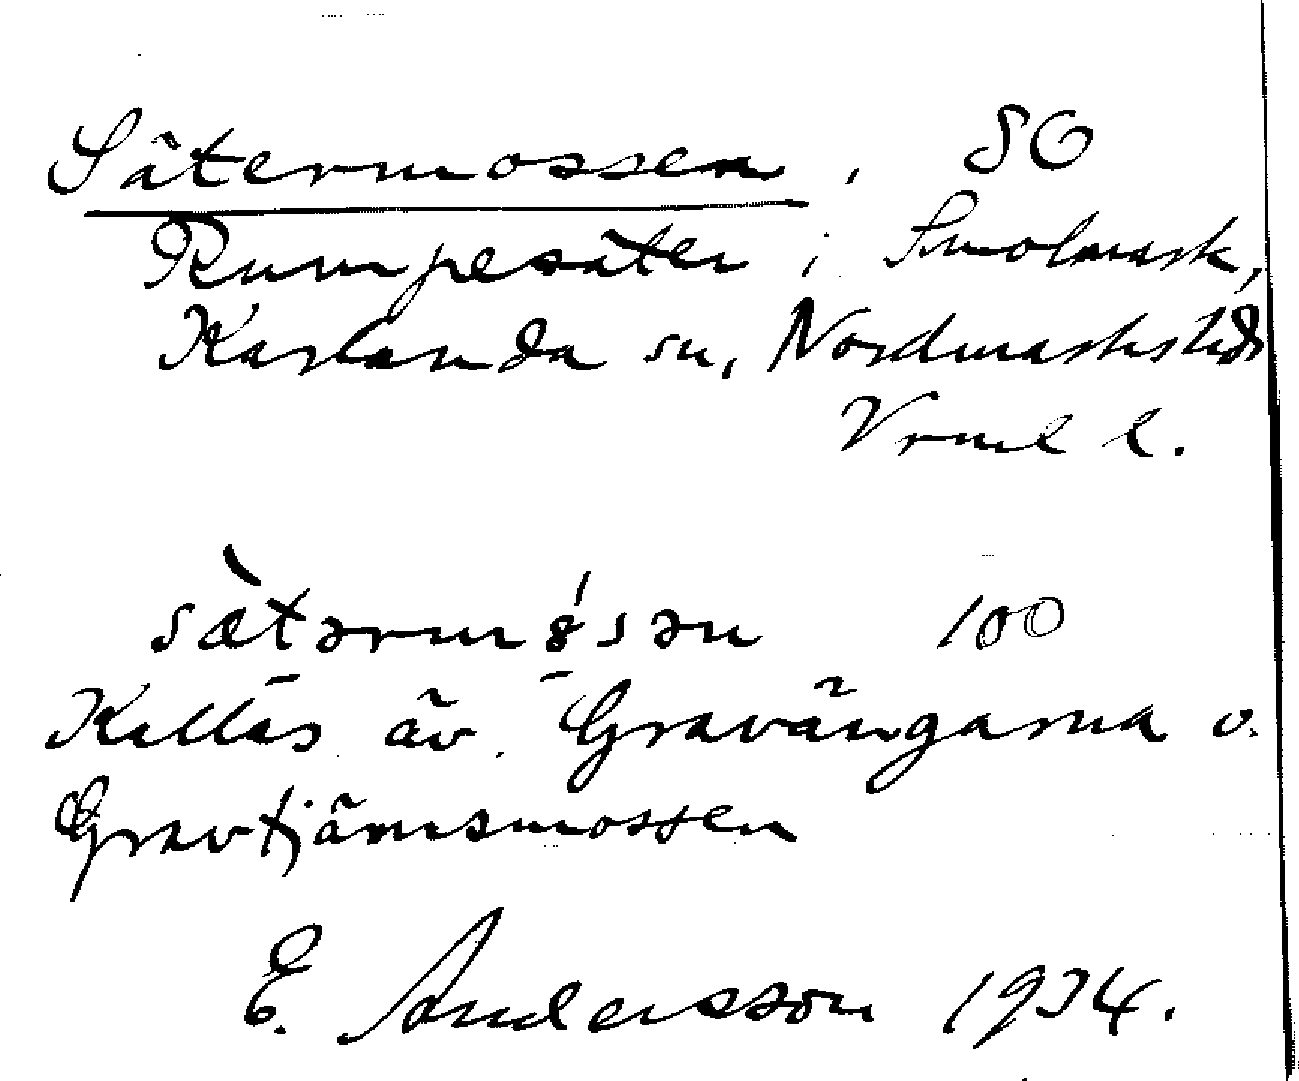 Sätermossen, SO
Rumpesäter i Smolmark,
Karlanda sn, Nordmarks
Vrml l.
sæ̀tərmósən 100
Kallas äv. Gravängarna o.
Gravtjärnsmossen
E. Andersson 1934.